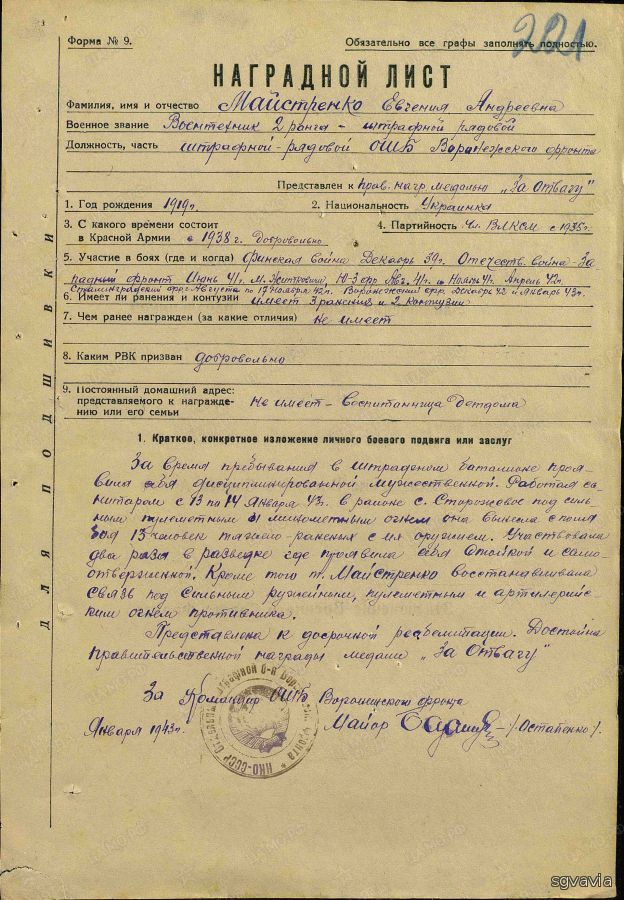 Форма № 9.
Обязательно все графы заполнять полностью.
221
НАГРАДНОЙ ЛИСТ
Фамилия, имя и отчество Майстренко Евгения Андреевна
Военное звание Воентехник 2 ранга - штрафной рядовой
Должность, часть штрафной-рядовой ОШБ Воронежского фронта
Представлен к прав. нагр. медалью „За Отвагу"
1. Год рождения 1919 г. 2. Национальность Украинка
3. С какого времени состоит
в Красной Армии с 1938 г. добровольно
4. Партийность Чл. ВЛКСМ с 1935 г.
5. Участие в боях (где и когда) Финская война Декабрь 39 г. Отечеств. война За
падный фронт Июнь 41 г. Ю-З фр. 41 г. и Ноябрь 41 г. Апрель 42 г.
Сталинградский фр. с Августа по 17 Ноября 42 г. Воронежский фр. Декабрь 42 и Январь 43 г.
6. Имеет ли ранения и контузии имеет 3 ранения и 2 контузии
7. Чем ранее награжден (за какие отличия) не имеет
8. Каким РВК призван добровольно
9. Постоянный домашний адрес:
представляемого к награжде-
нию или его семьи
не имеет - Воспитанница Детдома
1. Краткое, конкретное изложение личного боевого подвига или заслуг
За время пребывания в штрафном баталионе проя-
вила себя дисциплинированной мужественной. Работая са
нитаром с 13 по 14 Января 43 г. в районе с. Сторожевое под силь-
ным пулеметным и минометным огнем она вынесла с поля
боя 13 человек тяжело-раненых с их оружием. Участвовала
два раза в разведке где проявила себя стойкой и само-
отверженной. Кроме того т. Майстренко восстанавливала
связь под сильным ружейным, пулеметным и артилерийс-
ким огнем противника.
Представлена к досрочной Достойна
правительственной награды медали „За Отвагу"
За Командир ОШБ Воронежского фронта
Января 1943 г. Майор /Остапенко/.
НКО-СССР
ДЛЯ ПОДШИВКИ
sgvavia